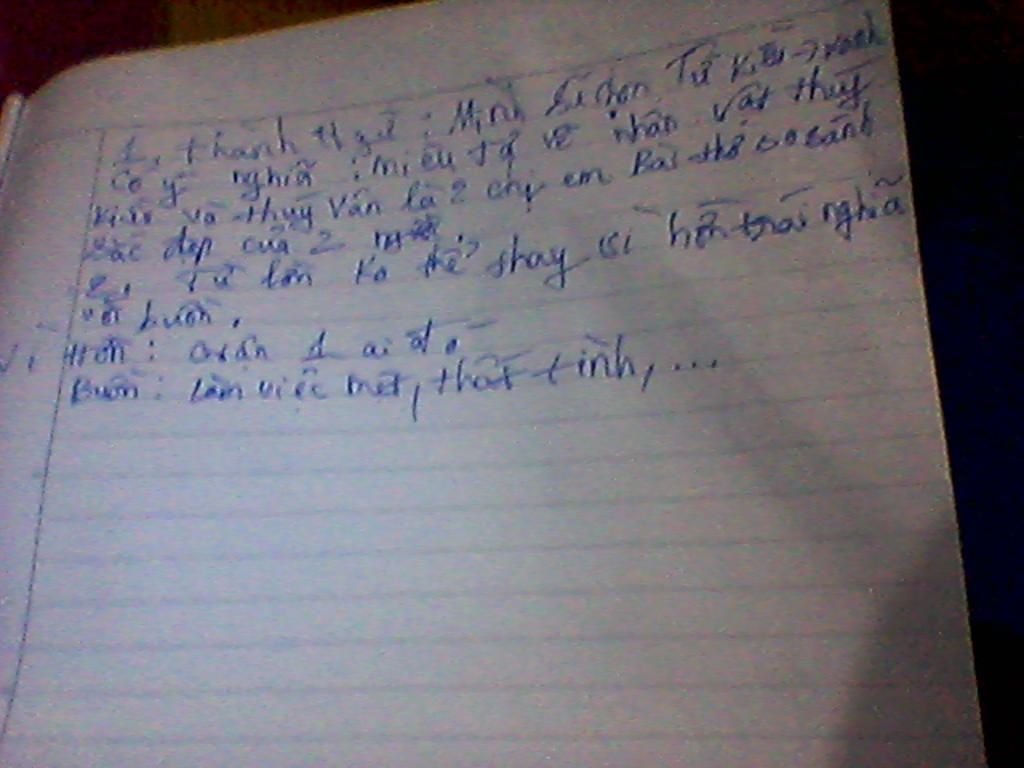 1, thành ngữ: Mình sẽ chọn Từ Kiều → xanh
có ý nghĩa: miêu tả về nhân vật thuý
Kiều và thuý Vân là 2 chị em Bài thơ so sánh
sắc đẹp của 2
2, Từ lớn ko thể thay vì hờn trái nghĩa
với buồn,
Hờn: 1 ai đó
Buồn: làm việc mệt, thất tình, ...